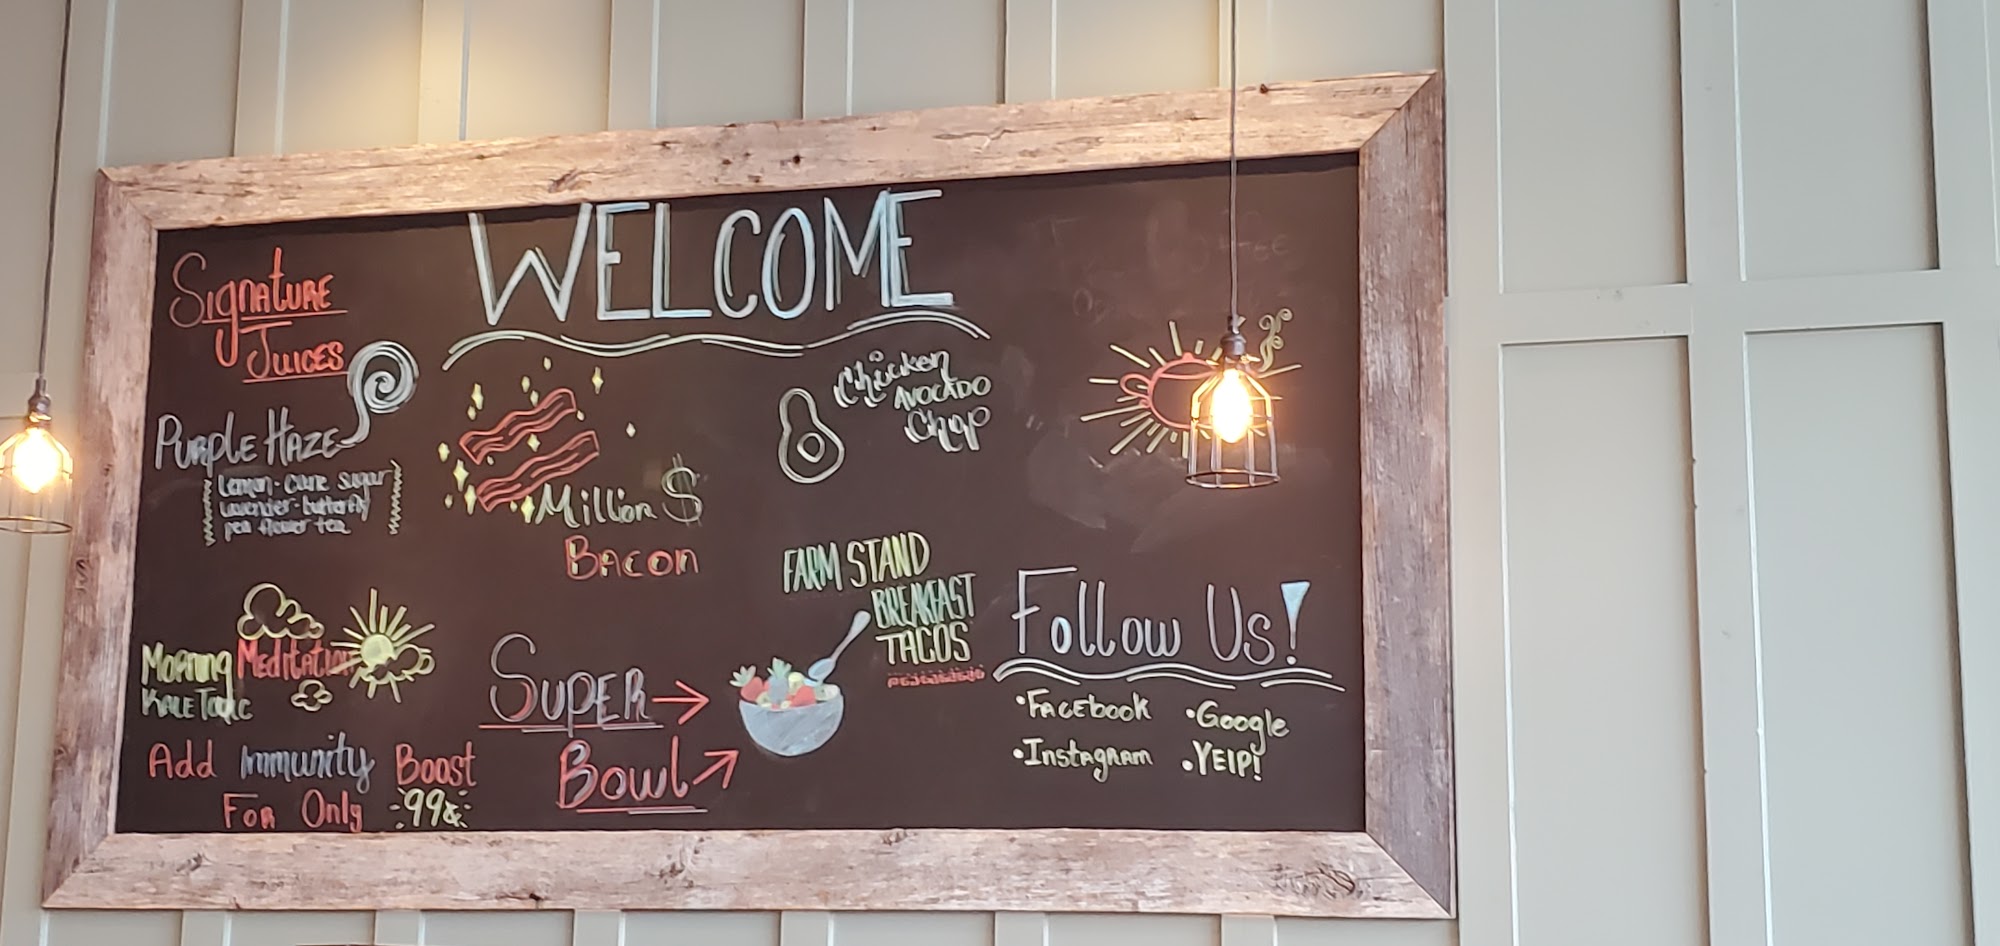 WELCOME
Signature
Juices
Purple Haze
Lemon · cane sugar
Lavender · butterfly
pea flower tea
Morning Meditation
Kale Tonic
Add Immunity Boost
For Only 99¢
Million $
Bacon
Super
Bowl
Chicken
Avocado
Chop
FARM STAND
BREAKFAST
TACOS
Follow Us!
• Facebook
• Google
• Instagram
• YELP!